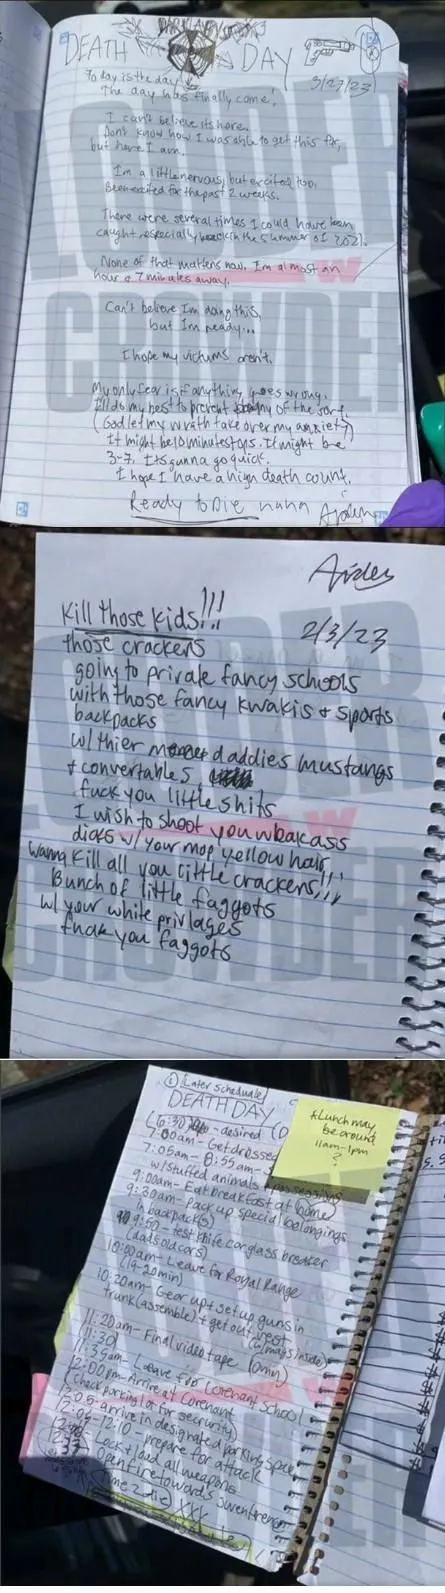 DEATH DAY
3/27/23
Today is the day
The day has finally come!
I can't believe its here.
Dont know how I was able to get this far,
but here I am.
I'm a little nervous, but excited too.
Been excited for the past 2 weeks.
There were several times I could have been
caught especially back in the summer of 2021.
None of that matters now. I'm almost an
hour & 7 minutes away.
Can't believe I'm doing this,
but I'm ready...
I hope my victims aren't.
My only fear is if anything goes wrong.
I'll do my best to prevent any of the sort.
(God let my wrath take over my anxiety)
It might be 10 minutes tops. It might be
3-7. Its gunna go quick.
I hope I have a high death count.
Ready to Die haha Aiden
Aiden
Kill those kids!!!
2/3/23
those crackers
going to private fancy schools
with those fancy kwakis + sports
backpacks
w/ thier daddies mustangs
+ convertables
fuck you little shits
I wish to shoot you weakass
dicks w/ your mop yellow hair
wanna kill all you little crackers!!!
Bunch of little faggots
w/ your white privlages
fuck you faggots
① Later schedule
DEATH DAY
*Lunch may
be around
11am-1pm
?
6:30 - desired
7:00am - Get dressed
7:05am - 8:55am -
w/ stuffed animals + possessions
9:00am - Eat breakfast at home
9:30am - Pack up special belongings
(in backpacks)
9:50 - test knife car glass breaker
(dads old cars)
10:00am - Leave for Royal Range
(19-20min)
10:20am - Gear up + set up guns in
trunk (assemble) + get out vest
(mags inside)
11:20am - Final video tape (10min)
11:30
11:35am - Leave for Covenant School
12:00pm - Arrive at Covenant
(check parking lot for security)
12:05 - arrive in designated parking space
12:05-12:10 - prepare for attack
Lock + load all weapons
Open fire towards
Time 2 die XXX
LOUDER
W
CROWDER